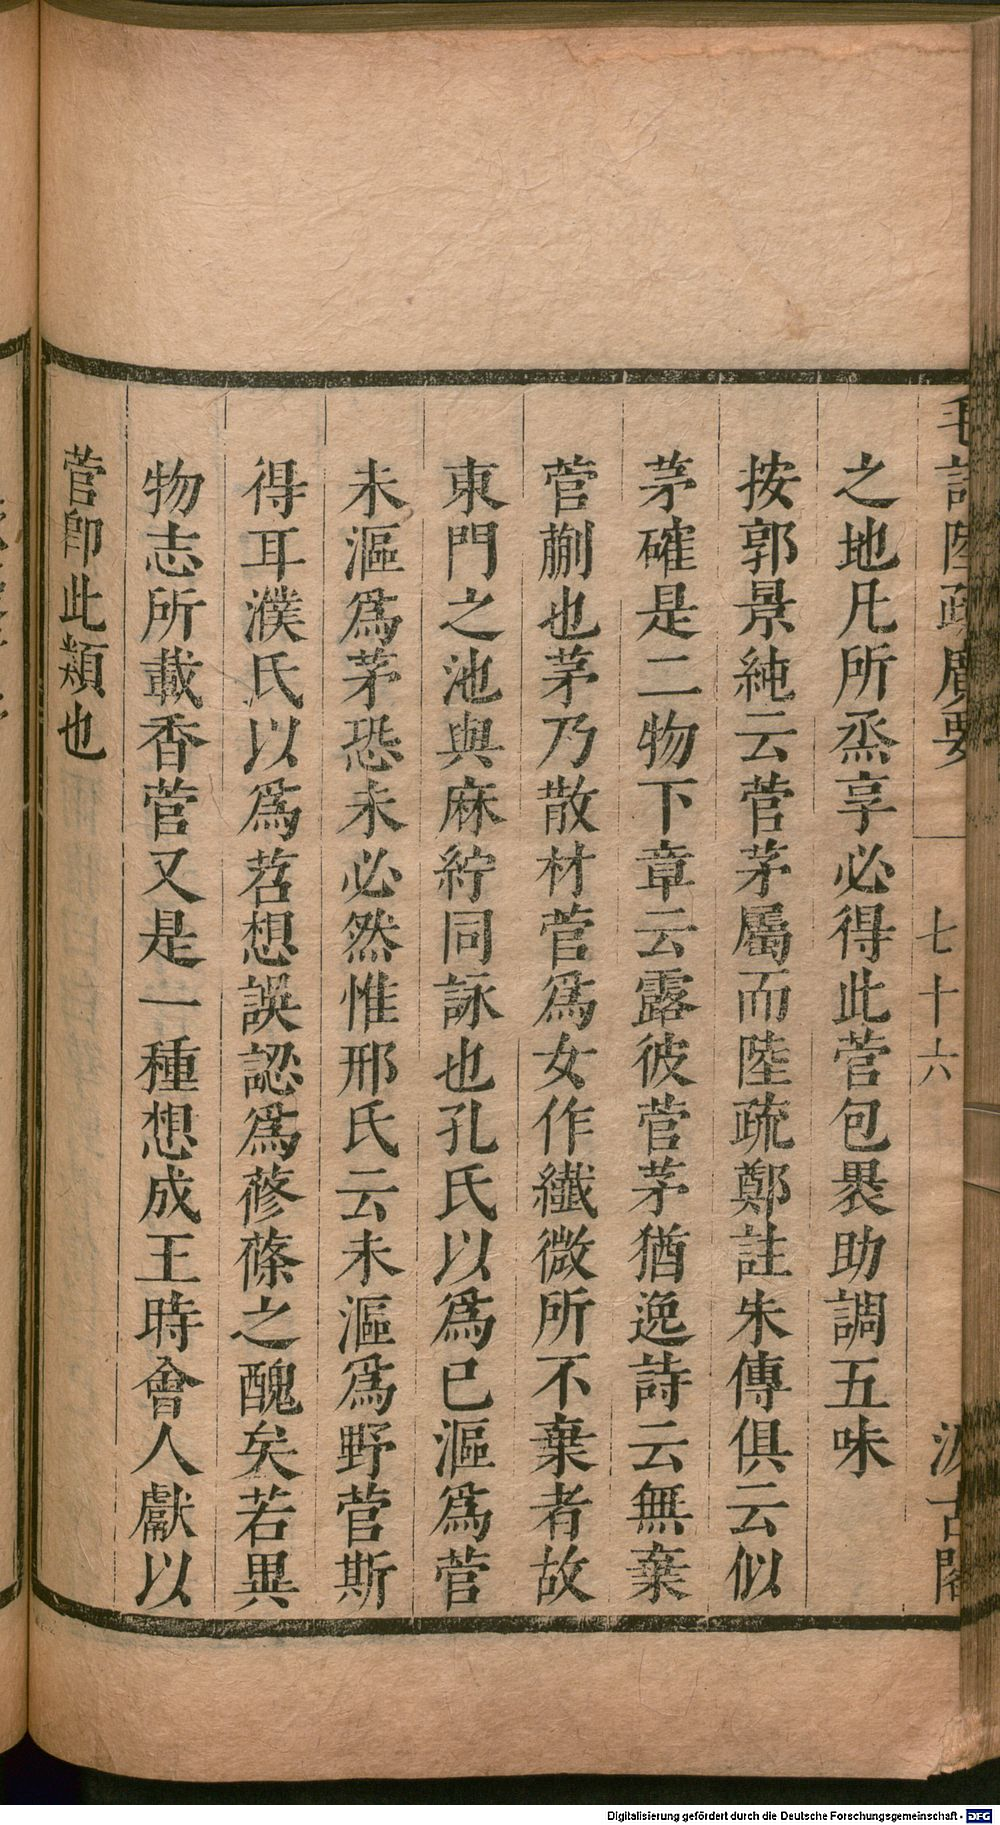 毛詩陸疏廣要
七十六
汲古閣
之地凡所烝享必得此菅包褁助調五味
按郭景純云菅茅屬而陸疏鄭註朱傳俱云似
茅確是二物下章云露彼菅茅猶逸詩云無棄
菅蒯也茅乃散材菅爲女作纖微所不棄者故
東門之池與麻紵同詠也孔氏以爲已漚爲菅
未漚爲茅恐未必然惟邢氏云未漚爲野菅斯
得耳濮氏以爲苕想誤認爲蓚蓧之醜矣若異
物志所載香菅又是一種想成王時會人獻以
菅卽此類也
Digitalisierung gefördert durch die Deutsche Forschungsgemeinschaft - DFG